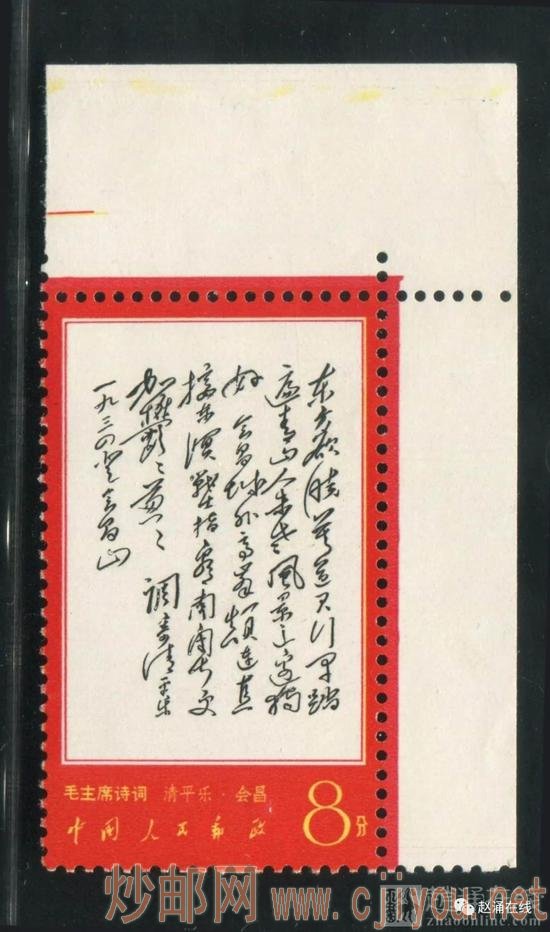 东方欲晓莫道君行早踏
遍青山人未老風景这边独
好 会昌城外高峯颠连直
接东溟战士指看南粤更
加鬱〻葱〻 調寄清平乐
一九三四登会昌山
毛主席诗词 清平乐·会昌
中國人民郵政
8分
炒邮网 www.cjiyou.net
赵涌在线
zhaoonline.com
赵涌在线